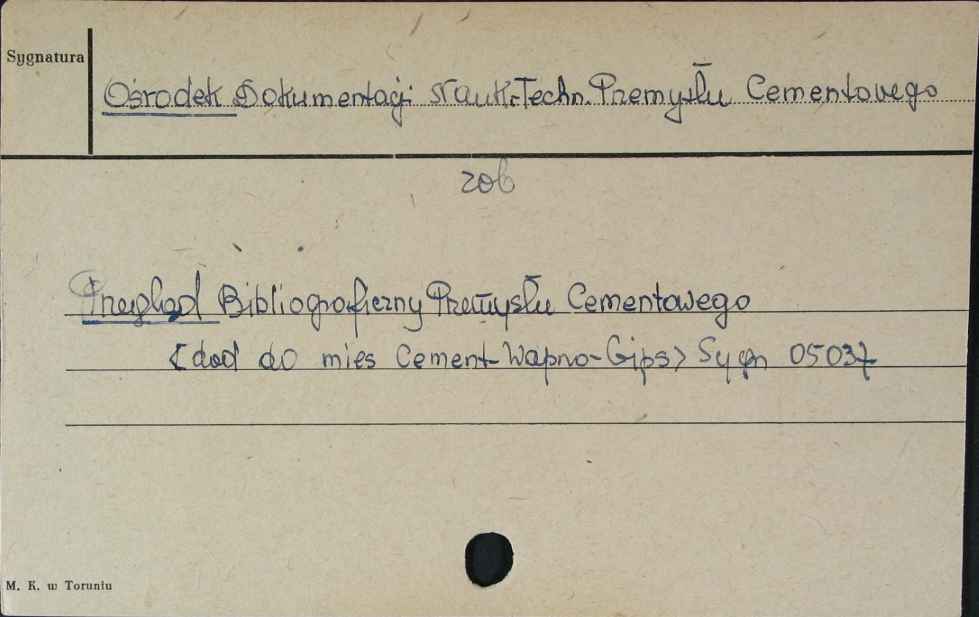 Sygnatura
Ośrodek Dokumentacji Nauk.-Techn. Przemysłu Cementowego
zob
Przegląd Bibliograficzny Przemysłu Cementowego
<dod do mies Cement-Wapno-Gips> Sygn 05037
M. K. w Toruniu